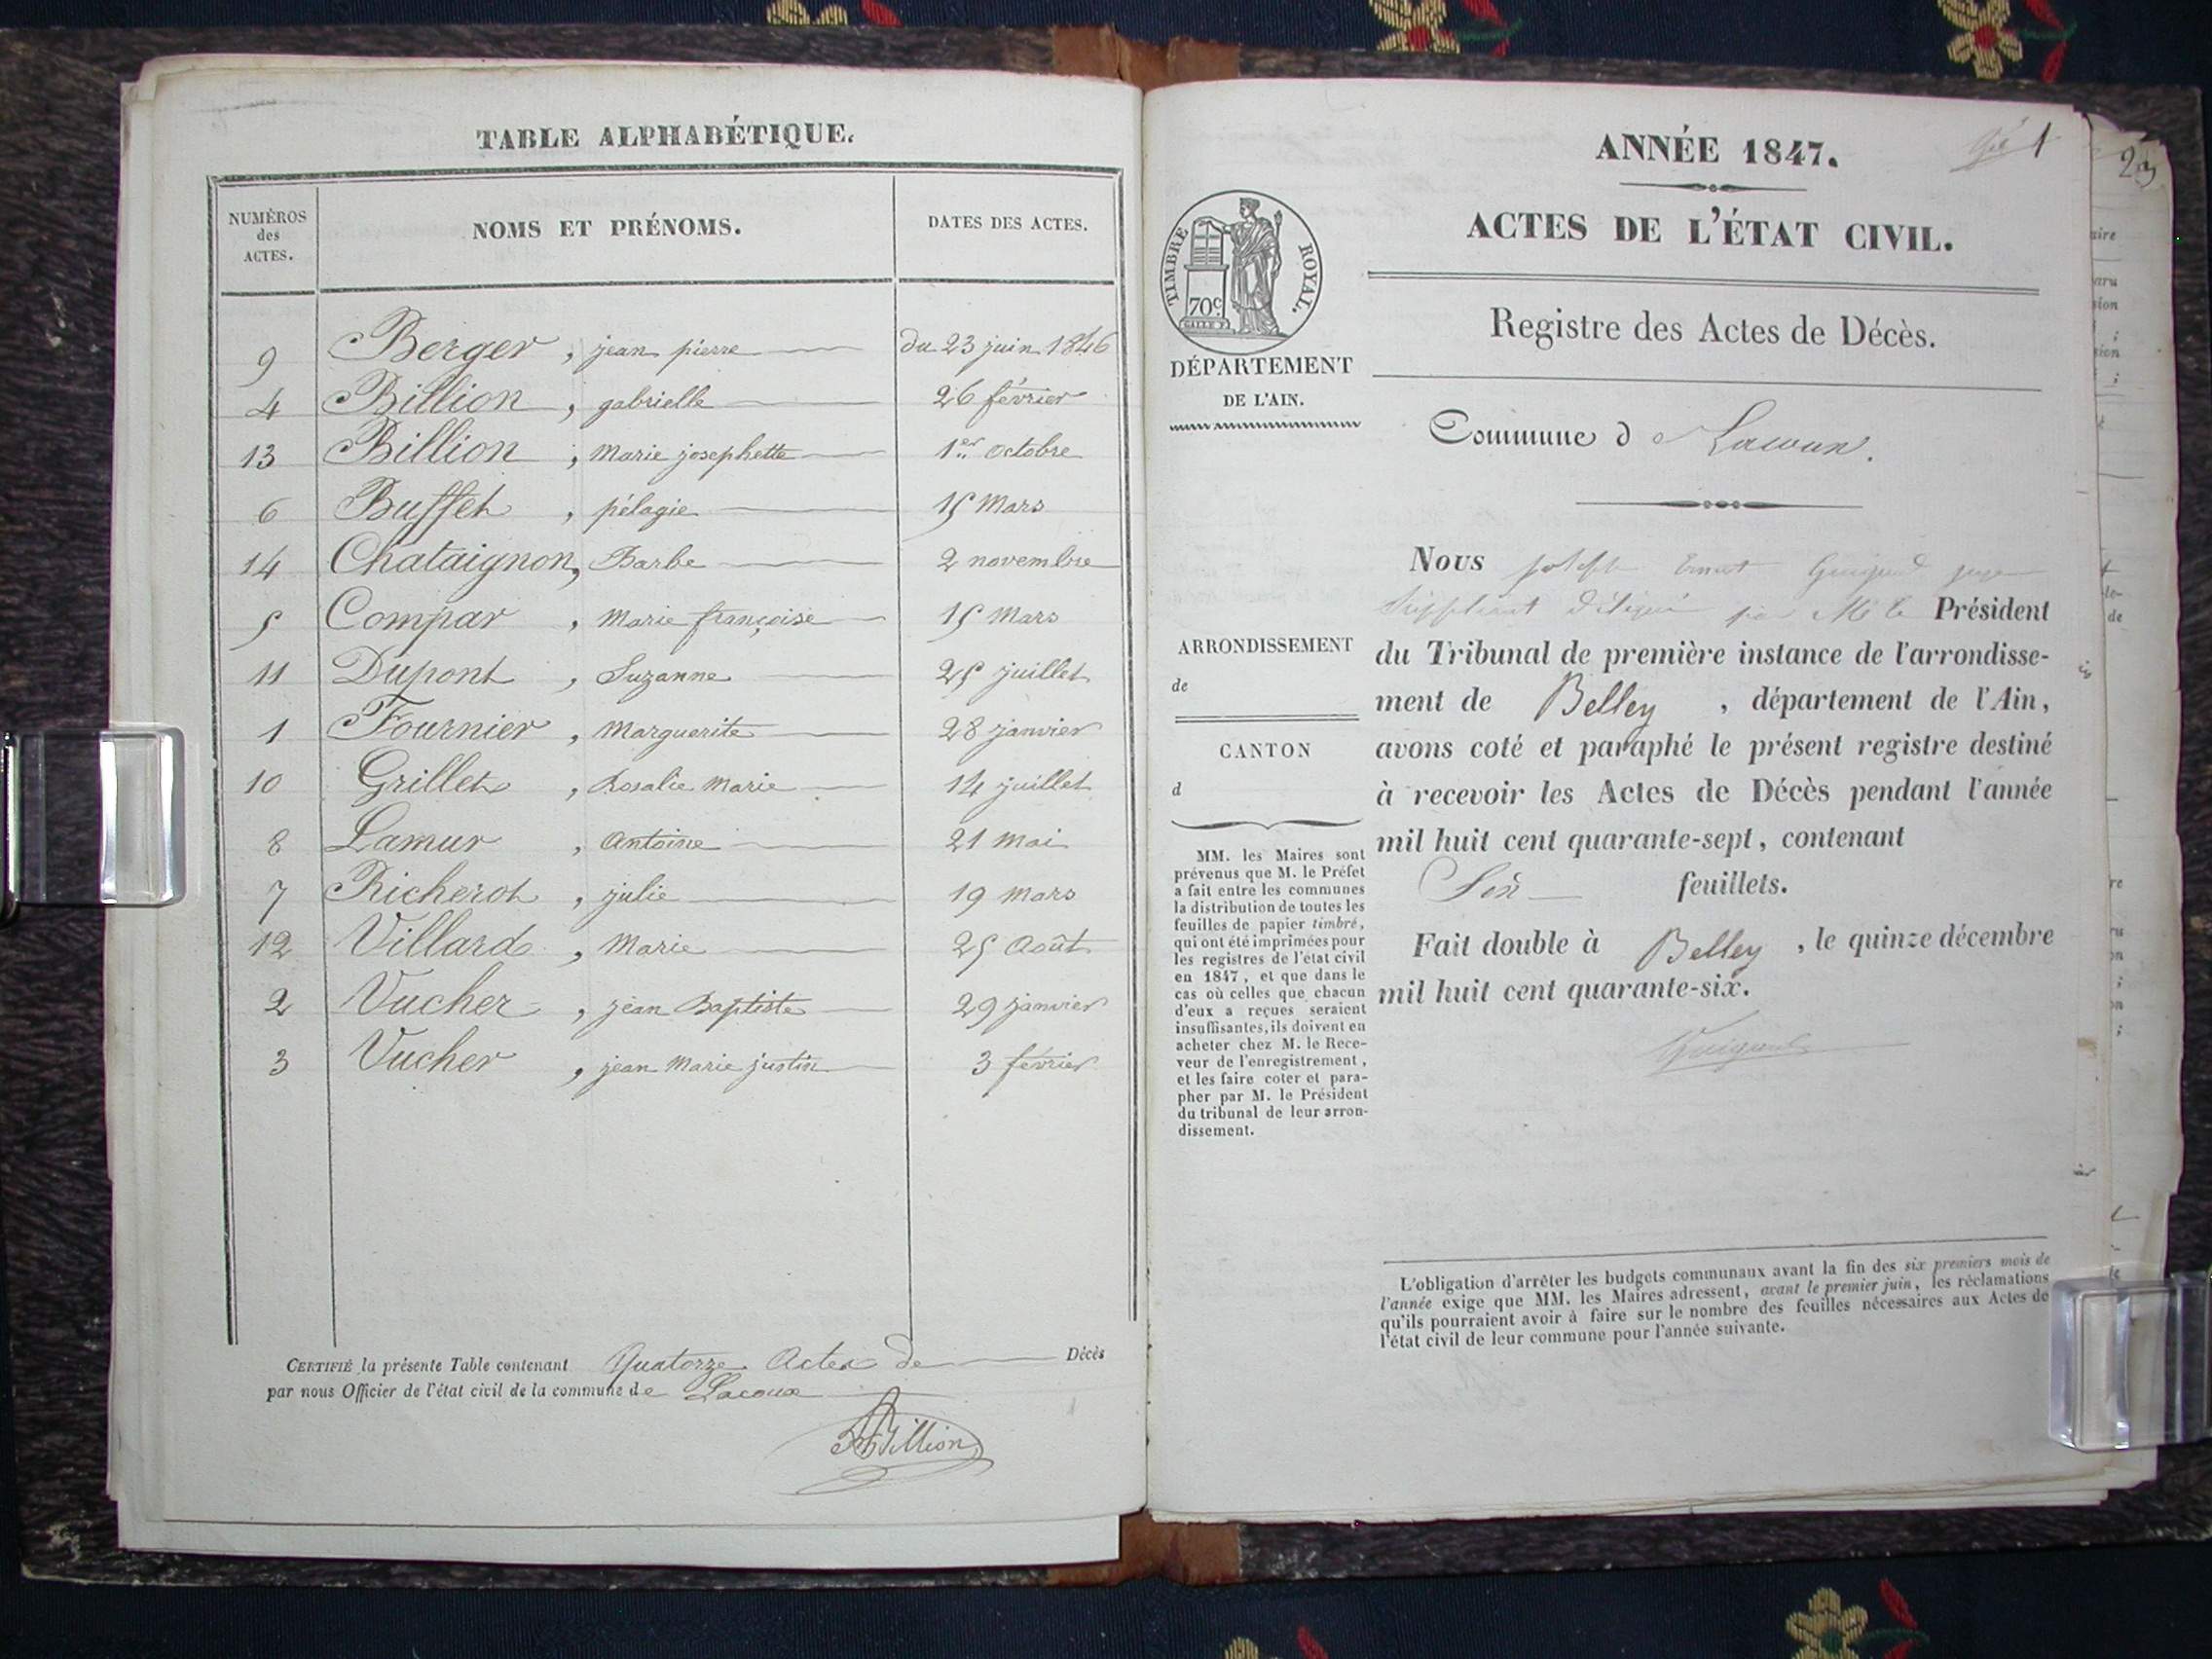 TABLE ALPHABÉTIQUE.
NUMÉROS des ACTES.
NOMS ET PRÉNOMS.
DATES DES ACTES.
9 Berger, jean pierre du 23 juin 1846
4 Billion, gabrielle 26 février
13 Billion, Marie josephette 1er octobre
6 Buffet, pélagie 15 Mars
14 Chataignon, Barbe 2 novembre
5 Compar, Marie françoise 15 Mars
11 Dupont, Suzanne 25 juillet
1 Fournier, Marguerite 28 janvier
10 Grillet, Rosalie Marie 14 juillet
8 Lamur, Antoine 21 Mai
7 Richerot, julie 19 Mars
12 Villard, Marie 25 Août
2 Vucher, jean Baptiste 29 janvier
3 Vucher, jean Marie justin 3 février
CERTIFIÉ la présente Table contenant Quatorze Actes de Décès
par nous Officier de l'état civil de la commune de Lacoux
Billion
1
ANNÉE 1847.
ACTES DE L'ÉTAT CIVIL.
TIMBRE ROYAL.
70c
DÉPARTEMENT
DE L'AIN.
Registre des Actes de Décès.
Commune de Lacoux.
Nous Joseph Guigard juge
Suppléant Délégué par Mr le Président
du Tribunal de première instance de l'arrondisse-
ment de Belley, département de l'Ain,
avons coté et paraphé le présent registre destiné
à recevoir les Actes de Décès pendant l'année
mil huit cent quarante-sept, contenant
Six feuillets.
Fait double à Belley, le quinze décembre
mil huit cent quarante-six.
ARRONDISSEMENT
de
CANTON
d
MM. les Maires sont
prévenus que M. le Préfet
a fait entre les communes
la distribution de toutes les
feuilles de papier timbré,
qui ont été imprimées pour
les registres de l'état civil
en 1847, et que dans le
cas où celles que chacun
d'eux a reçues seraient
insuffisantes, ils doivent en
acheter chez M. le Rece-
veur de l'enregistrement,
et les faire coter et para-
pher par M. le Président
du tribunal de leur arron-
dissement.
L'obligation d'arrêter les budgets communaux avant la fin des six premiers mois de
l'année exige que MM. les Maires adressent, avant le premier juin, les réclamations
qu'ils pourraient avoir à faire sur le nombre des feuilles nécessaires aux Actes de
l'état civil de leur commune pour l'année suivante.